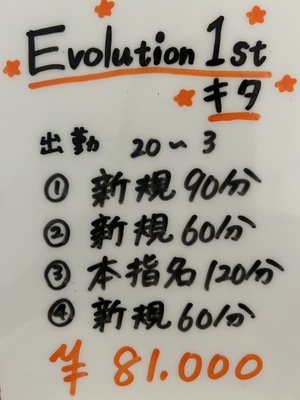 Evolution 1st
キタ
出勤 20〜3
① 新規90分
② 新規60分
③ 本指名120分
④ 新規60分
¥81.000